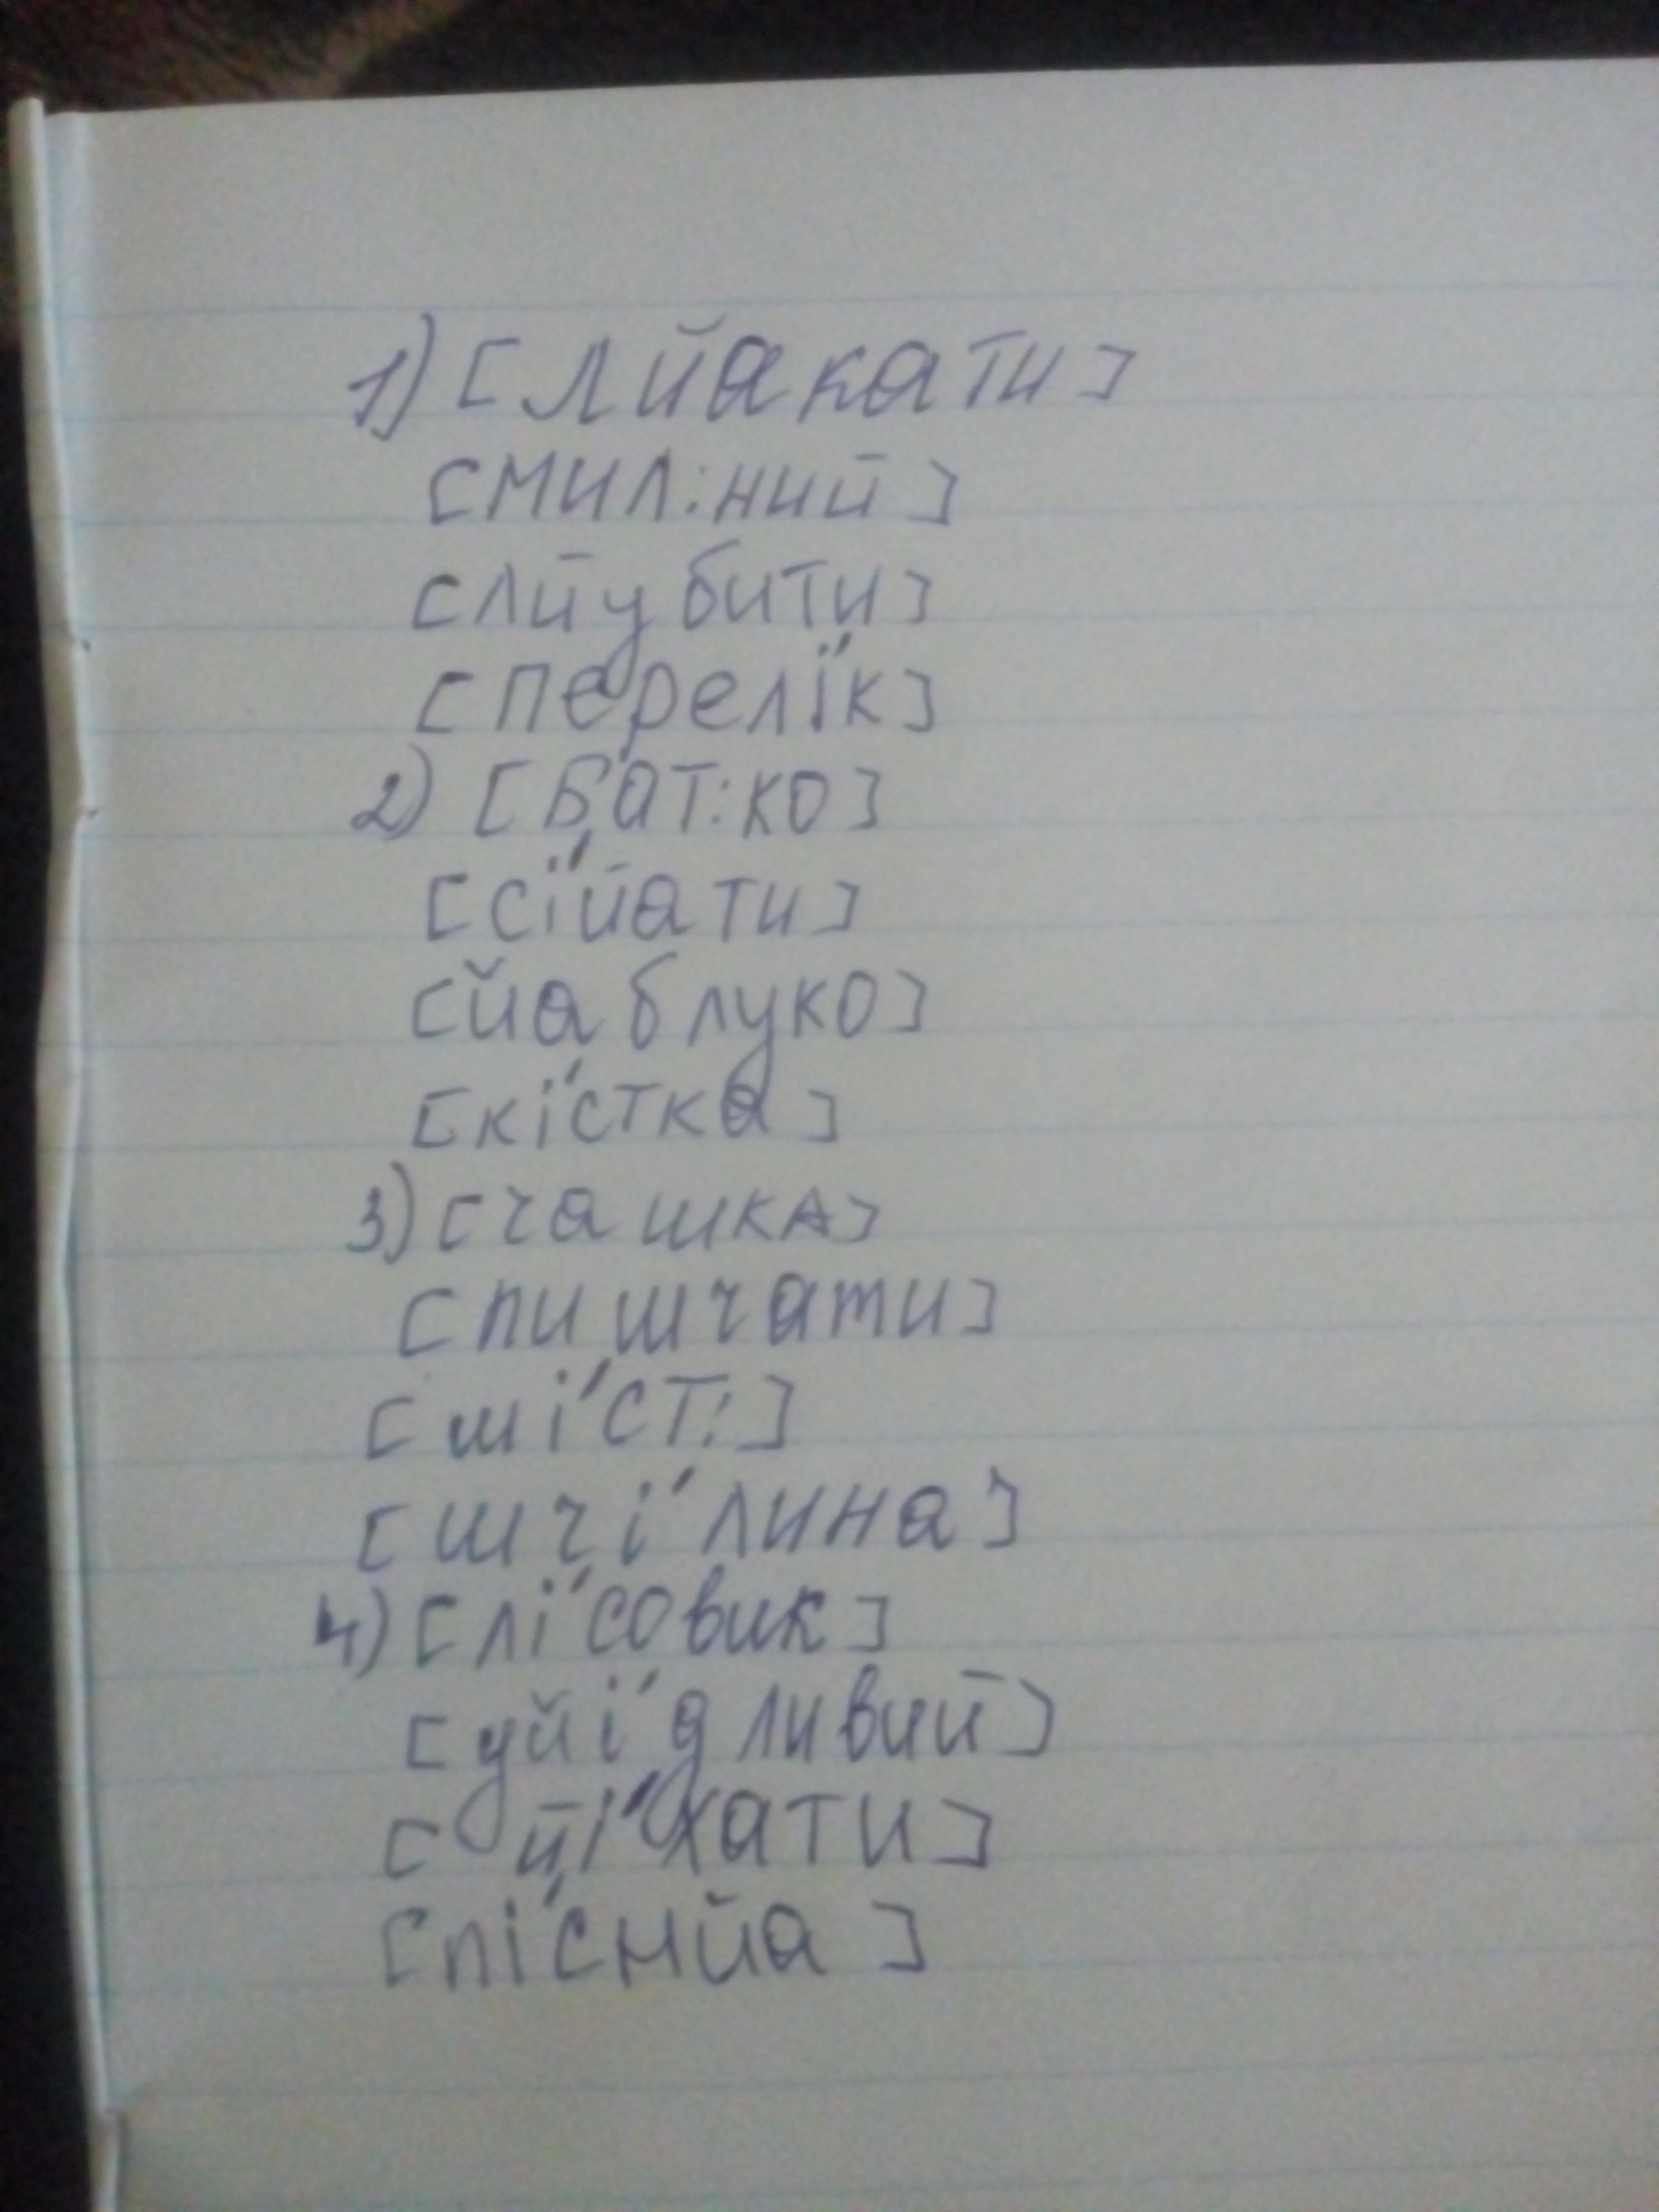 1) [лйакати]
[мил:ний]
[лйубити]
[перелі́к]
2) [бат:ко]
[сі́йати]
[йаблуко]
[кі́стка]
3) [чашка]
[пишчати]
[ші́ст:]
[шчі́лина]
4) [лі́совик]
[уйі́дливий]
[йі́хати]
[пі́снйа]